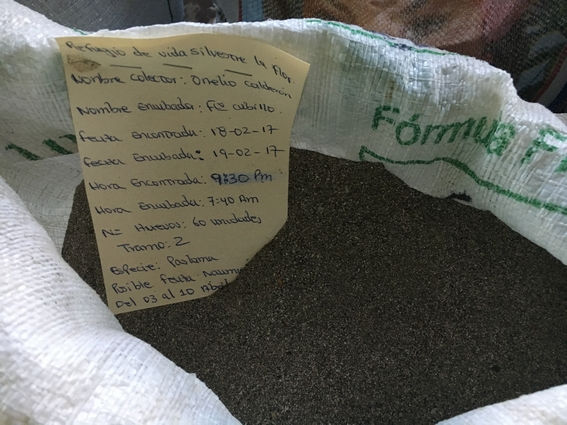 Refugio de vida silvestre la Flor
Nombre colector: Onelio Calderón
Nombre Encubador: Fco cubillo.
Fecha Encontrada: 18-02-17
Fecha Encubada: 19-02-17
Hora Encontrada: 9:30 Pm
Hora Encubada: 7:40 Am
N= Huevos: 60 unidades
Tramo: 2
Especie: Paslama
Posible fecha
Del 03 al 10 Abril
Fórmula